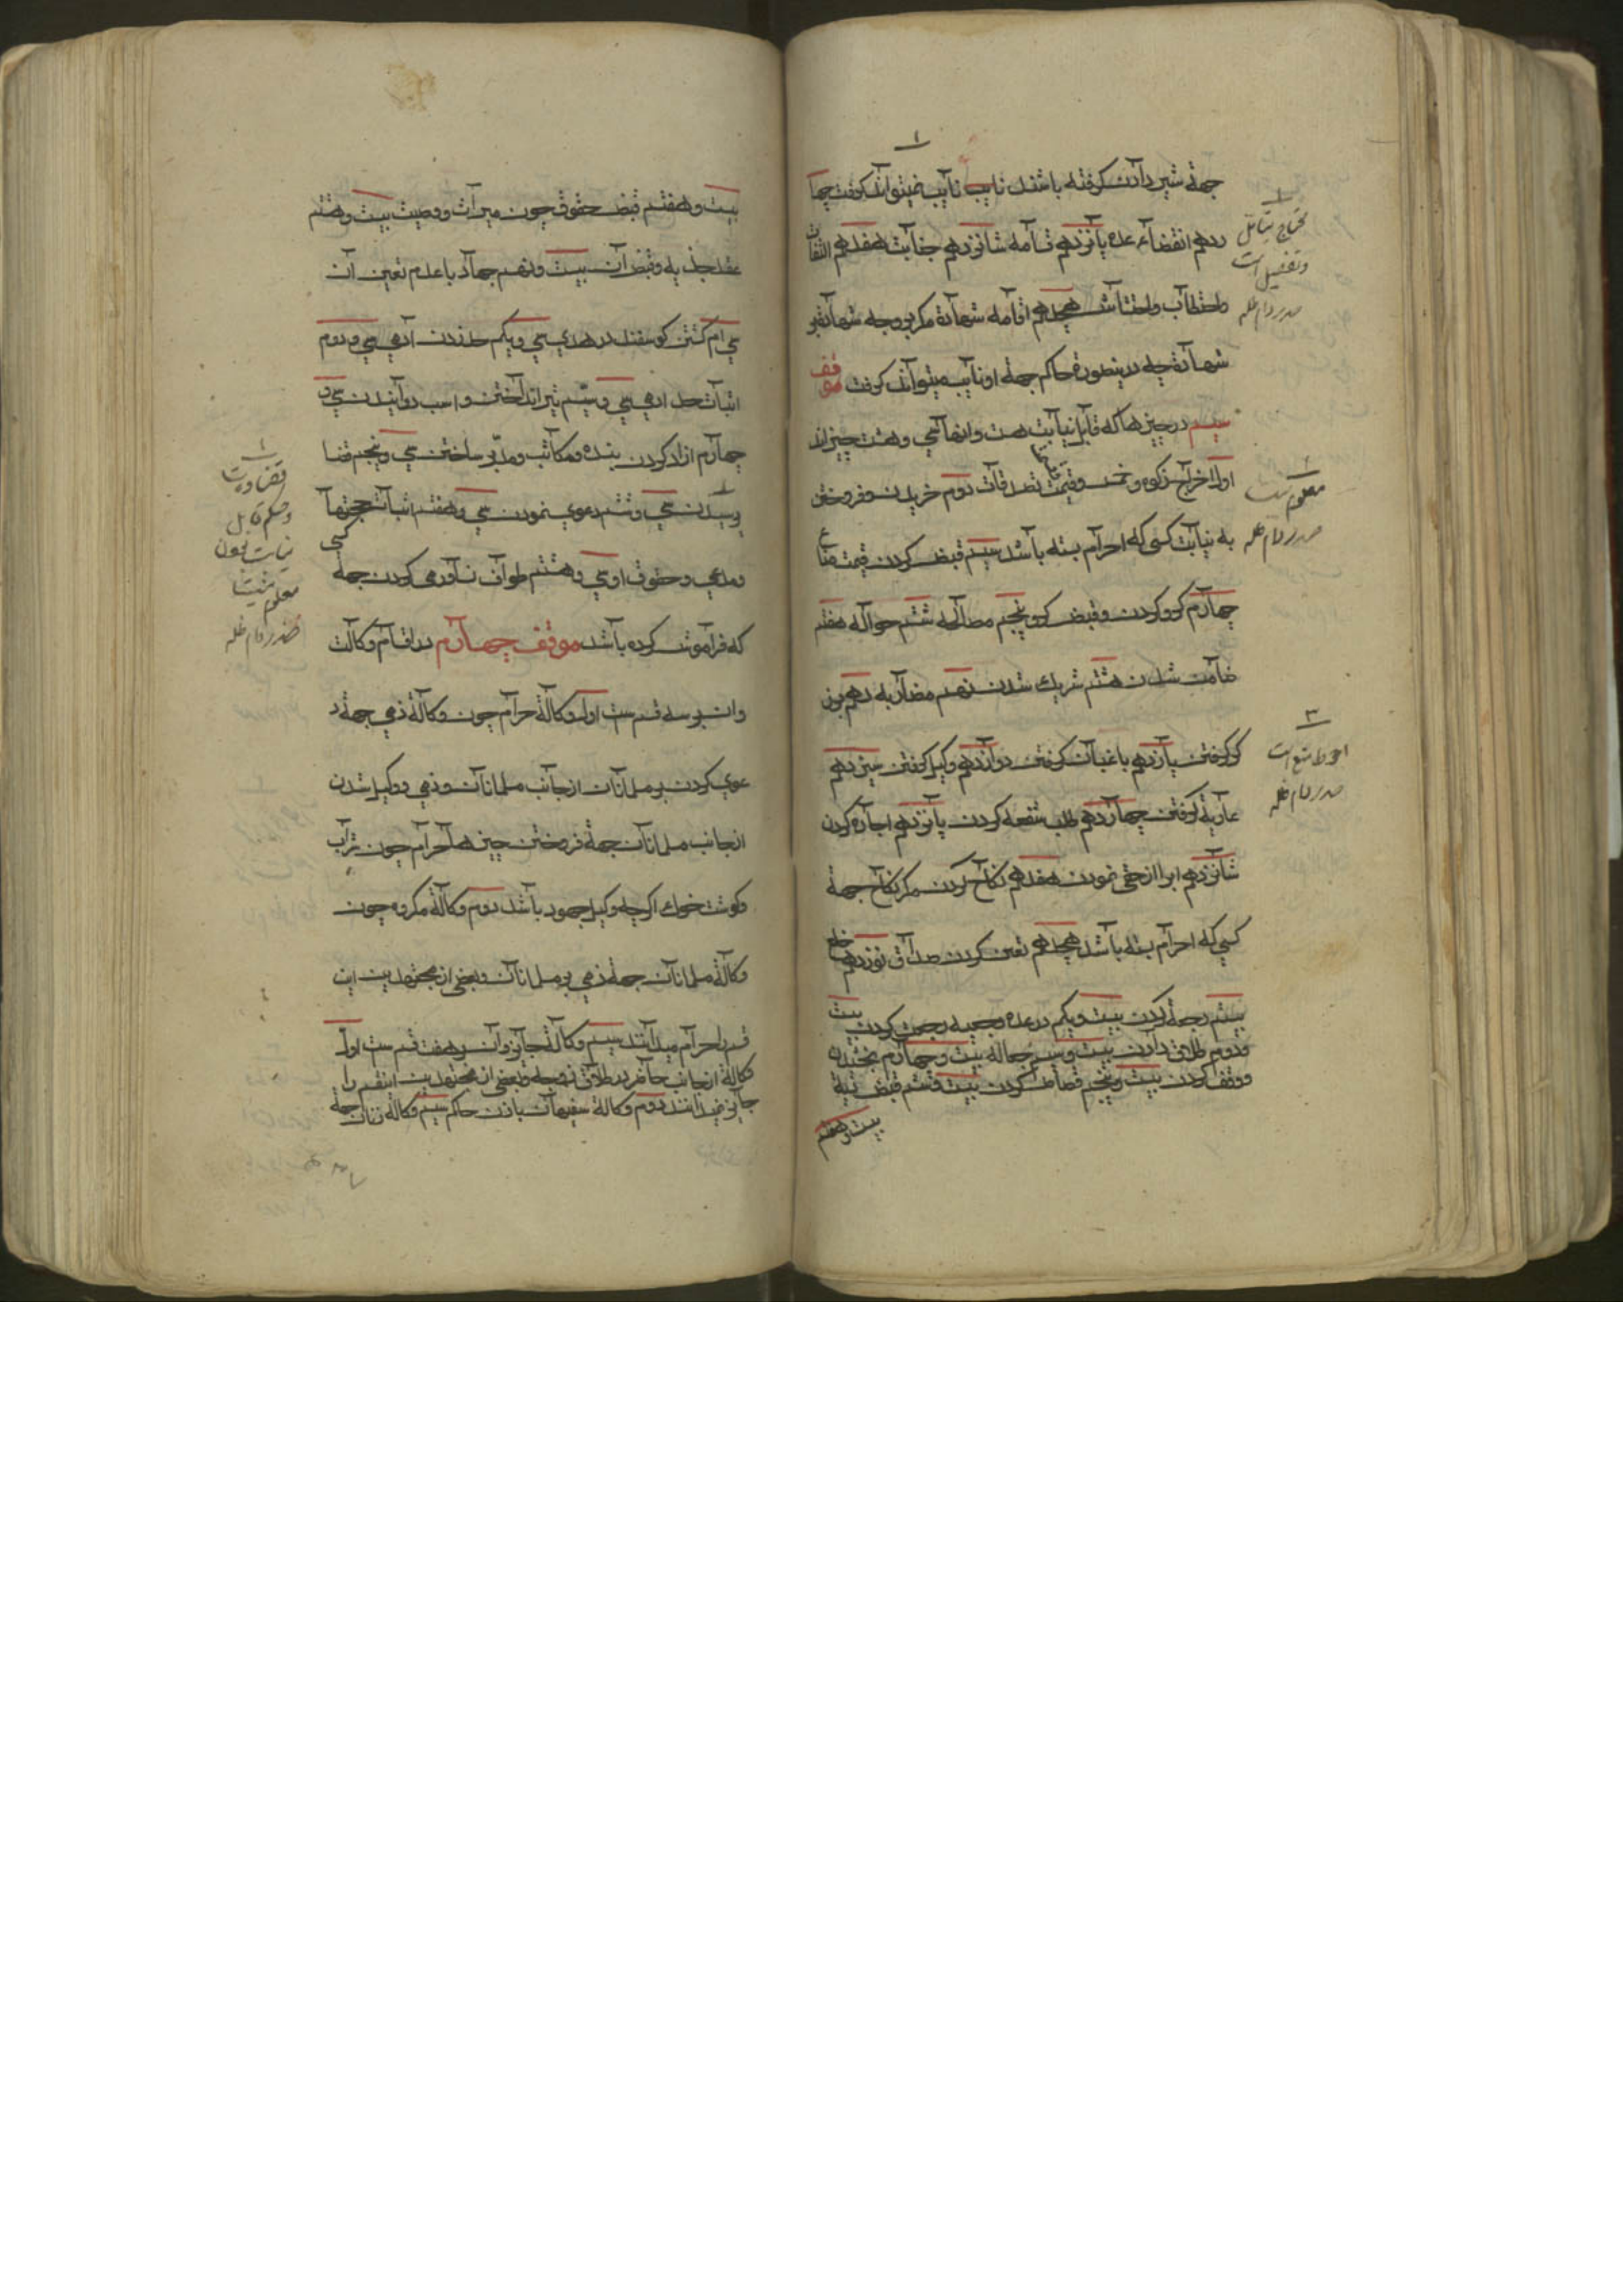 جهة شیر دادن کرفته باشند نایب نایب نمیتواند کرفت چها
ردهم انقضاء عده پانزدهم قسامه شانزدهم جنایت هفدهم التقاط
واحتطاب واحتشاش هجدهم اقامه شهادة مکر بر وجه شهادة بر
شهادة چه درینصورة حاکم جهة او نایب میتواند کرفت موقف
سیم در چیزهاکه قابل نیابت هست وانها سی وهشت چیزاند
اول اخراج زکوه وخمس وقیمت تصدقات دوم خریدن وفروختن
به نیابت کسی که احرام بسته باشد سیم قبض کردن قیمت متاع
چهارم کرو کردن وقبض کرو پنجم مصالحه ششم حواله هفتم
ضامن شدن هشتم شریك شدن نهم مضاربه دهم برز
کر کرفتن یازدهم باغبان کرفتن دوازدهم وکیل کرفتن سیزدهم
عاریة کرفتن چهاردهم طلب شفعه کردن پانزدهم اجاره کردن
شانزدهم ابرا از حقی نمودن هفدهم نکاح کردن مکر نکاح جهة
کسی که احرام بسته باشد هجدهم تعین کردن صداق نوزدهم خلع
بیستم رجعة کردن بیست ویکم در عده رجعیه رجعت کردن بیست
ودوم طلاق دادن بیست وسیم جعاله بیست وچهارم بخشیدن
ووقف کردن بیست وپنجم قصاص کردن بیست وششم قبض دیة
بیست وهفتم
محتاج بتأمل
وتفصیل است
صدر دام ظله
معلوم نیست
صدر دام ظله
احوط منع است
صدر دام ظله
بیست وهفتم قبض حقوق چون میراث ووصیت بیست وهشتم
عقد جذیه وقبض آن بیست ونهم جهاد باعدم تعین آن
سی ام کشتن کوسفند در هدی سی ویکم حد زدن آدمی سی ودوم
اثبات حد ادمی سی وسیم تیر انداختن واسب دوانیدن سی و
چهارم ازاد کردن بنده ومکاتب ومدبر ساختن سی وپنجم قضا
پرسیدن سی وششم دعوی نمودن سی وهفتم اثبات حجتها
ومدعی وحقوق او سی وهشتم طواف نساء رمی کردن جهة کسی
که فراموش کرده باشد موقف چهارم در اقسام وکالت
وان بر سه قسم ست اول وکالة حرام چون وکالة ذمی جهة د
عوی کردن بر مسلمانان از جانب مسلمانان وذمی ووکیل شدن
از جانب مسلمانان جهة فروختن چیزهاء حرام چون شراب
وکوشت خوك اکرچه وکیل جهود باشد دوم وکالة مکروه چون
وکالة مسلمانان جهة ذمی بر مسلمانان وبعضی از مجتهدین این
قسم را حرام میدانند سیم وکالة جایز وآن بر هفت قسم ست اول
وکالة از جانب حاضر در طلاق زوجه وبعضی از مجتهدین اینقسم را
جایز نمیدانند دوم وکالة سفیهان باذن حاکم سیم وکالة زنان جهة
قضاوت
وحکم قابل
نیابت بودن
معلوم نیست
صدر دام ظله